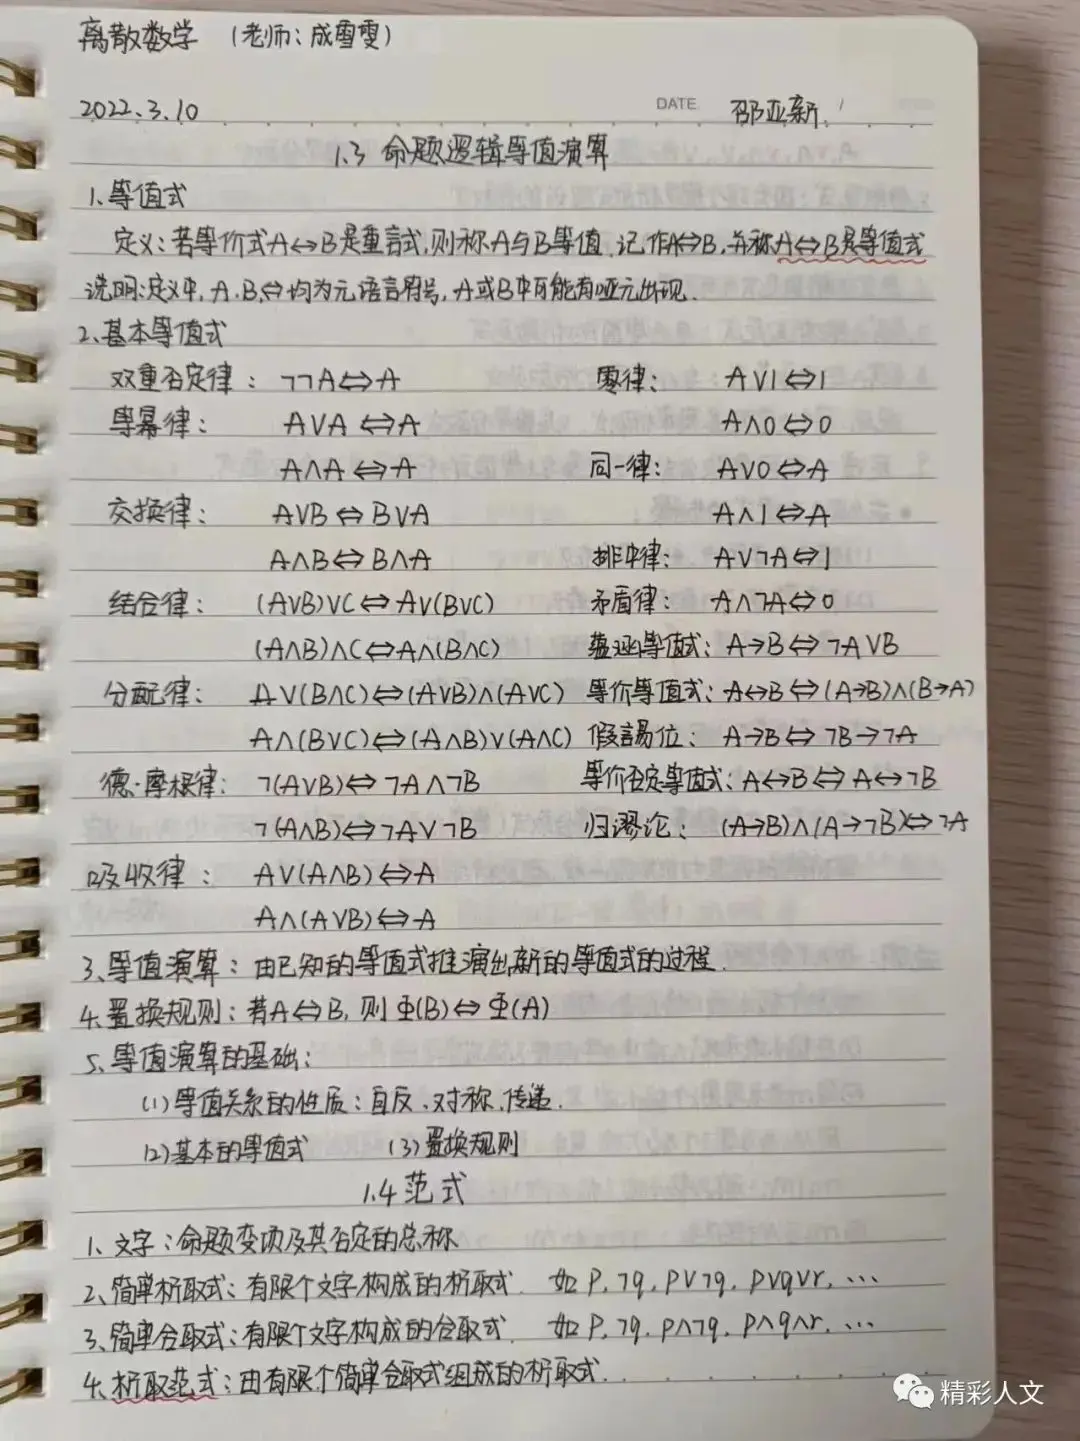 离散数学 (老师：成雪雯)
2022.3.10 DATE 邵亚新
1.3 命题逻辑等值演算
1、等值式
定义：若等价式A↔B是重言式，则称A与B等值，记作A⇔B，并称A⇔B是等值式
说明：定义中，A，B，⇔均为元语言符号，A或B中可能有哑元出现．
2、基本等值式
双重否定律： ¬¬A⇔A 零律： A∨1⇔1
等幂律： A∨A⇔A A∧0⇔0
A∧A⇔A 同一律： A∨0⇔A
交换律： A∨B⇔B∨A A∧1⇔A
A∧B⇔B∧A 排中律： A∨¬A⇔1
结合律： (A∨B)∨C⇔A∨(B∨C) 矛盾律： A∧¬A⇔0
(A∧B)∧C⇔A∧(B∧C) 蕴涵等值式： A→B⇔¬A∨B
分配律： A∨(B∧C)⇔(A∨B)∧(A∨C) 等价等值式： A↔B⇔(A→B)∧(B→A)
A∧(B∨C)⇔(A∧B)∨(A∧C) 假言易位： A→B⇔¬B→¬A
德·摩根律： ¬(A∨B)⇔¬A∧¬B 等价否定等值式： A↔B⇔A↔¬B
¬(A∧B)⇔¬A∨¬B 归谬论： (A→B)∧(A→¬B)⇔¬A
吸收律： A∨(A∧B)⇔A
A∧(A∨B)⇔A
3、等值演算：由已知的等值式推演出新的等值式的过程．
4、置换规则：若A⇔B，则Φ(B)⇔Φ(A)
5、等值演算的基础：
(1)等值关系的性质：自反、对称、传递．
(2)基本的等值式 (3)置换规则
1.4 范式
1、文字：命题变项及其否定的总称
2、简单析取式：有限个文字构成的析取式． 如 p，¬q，p∨¬q，p∨q∨r，…
3、简单合取式：有限个文字构成的合取式． 如 p，¬q，p∧¬q，p∧q∧r，…
4、析取范式：由有限个简单合取式组成的析取式．
精彩人文